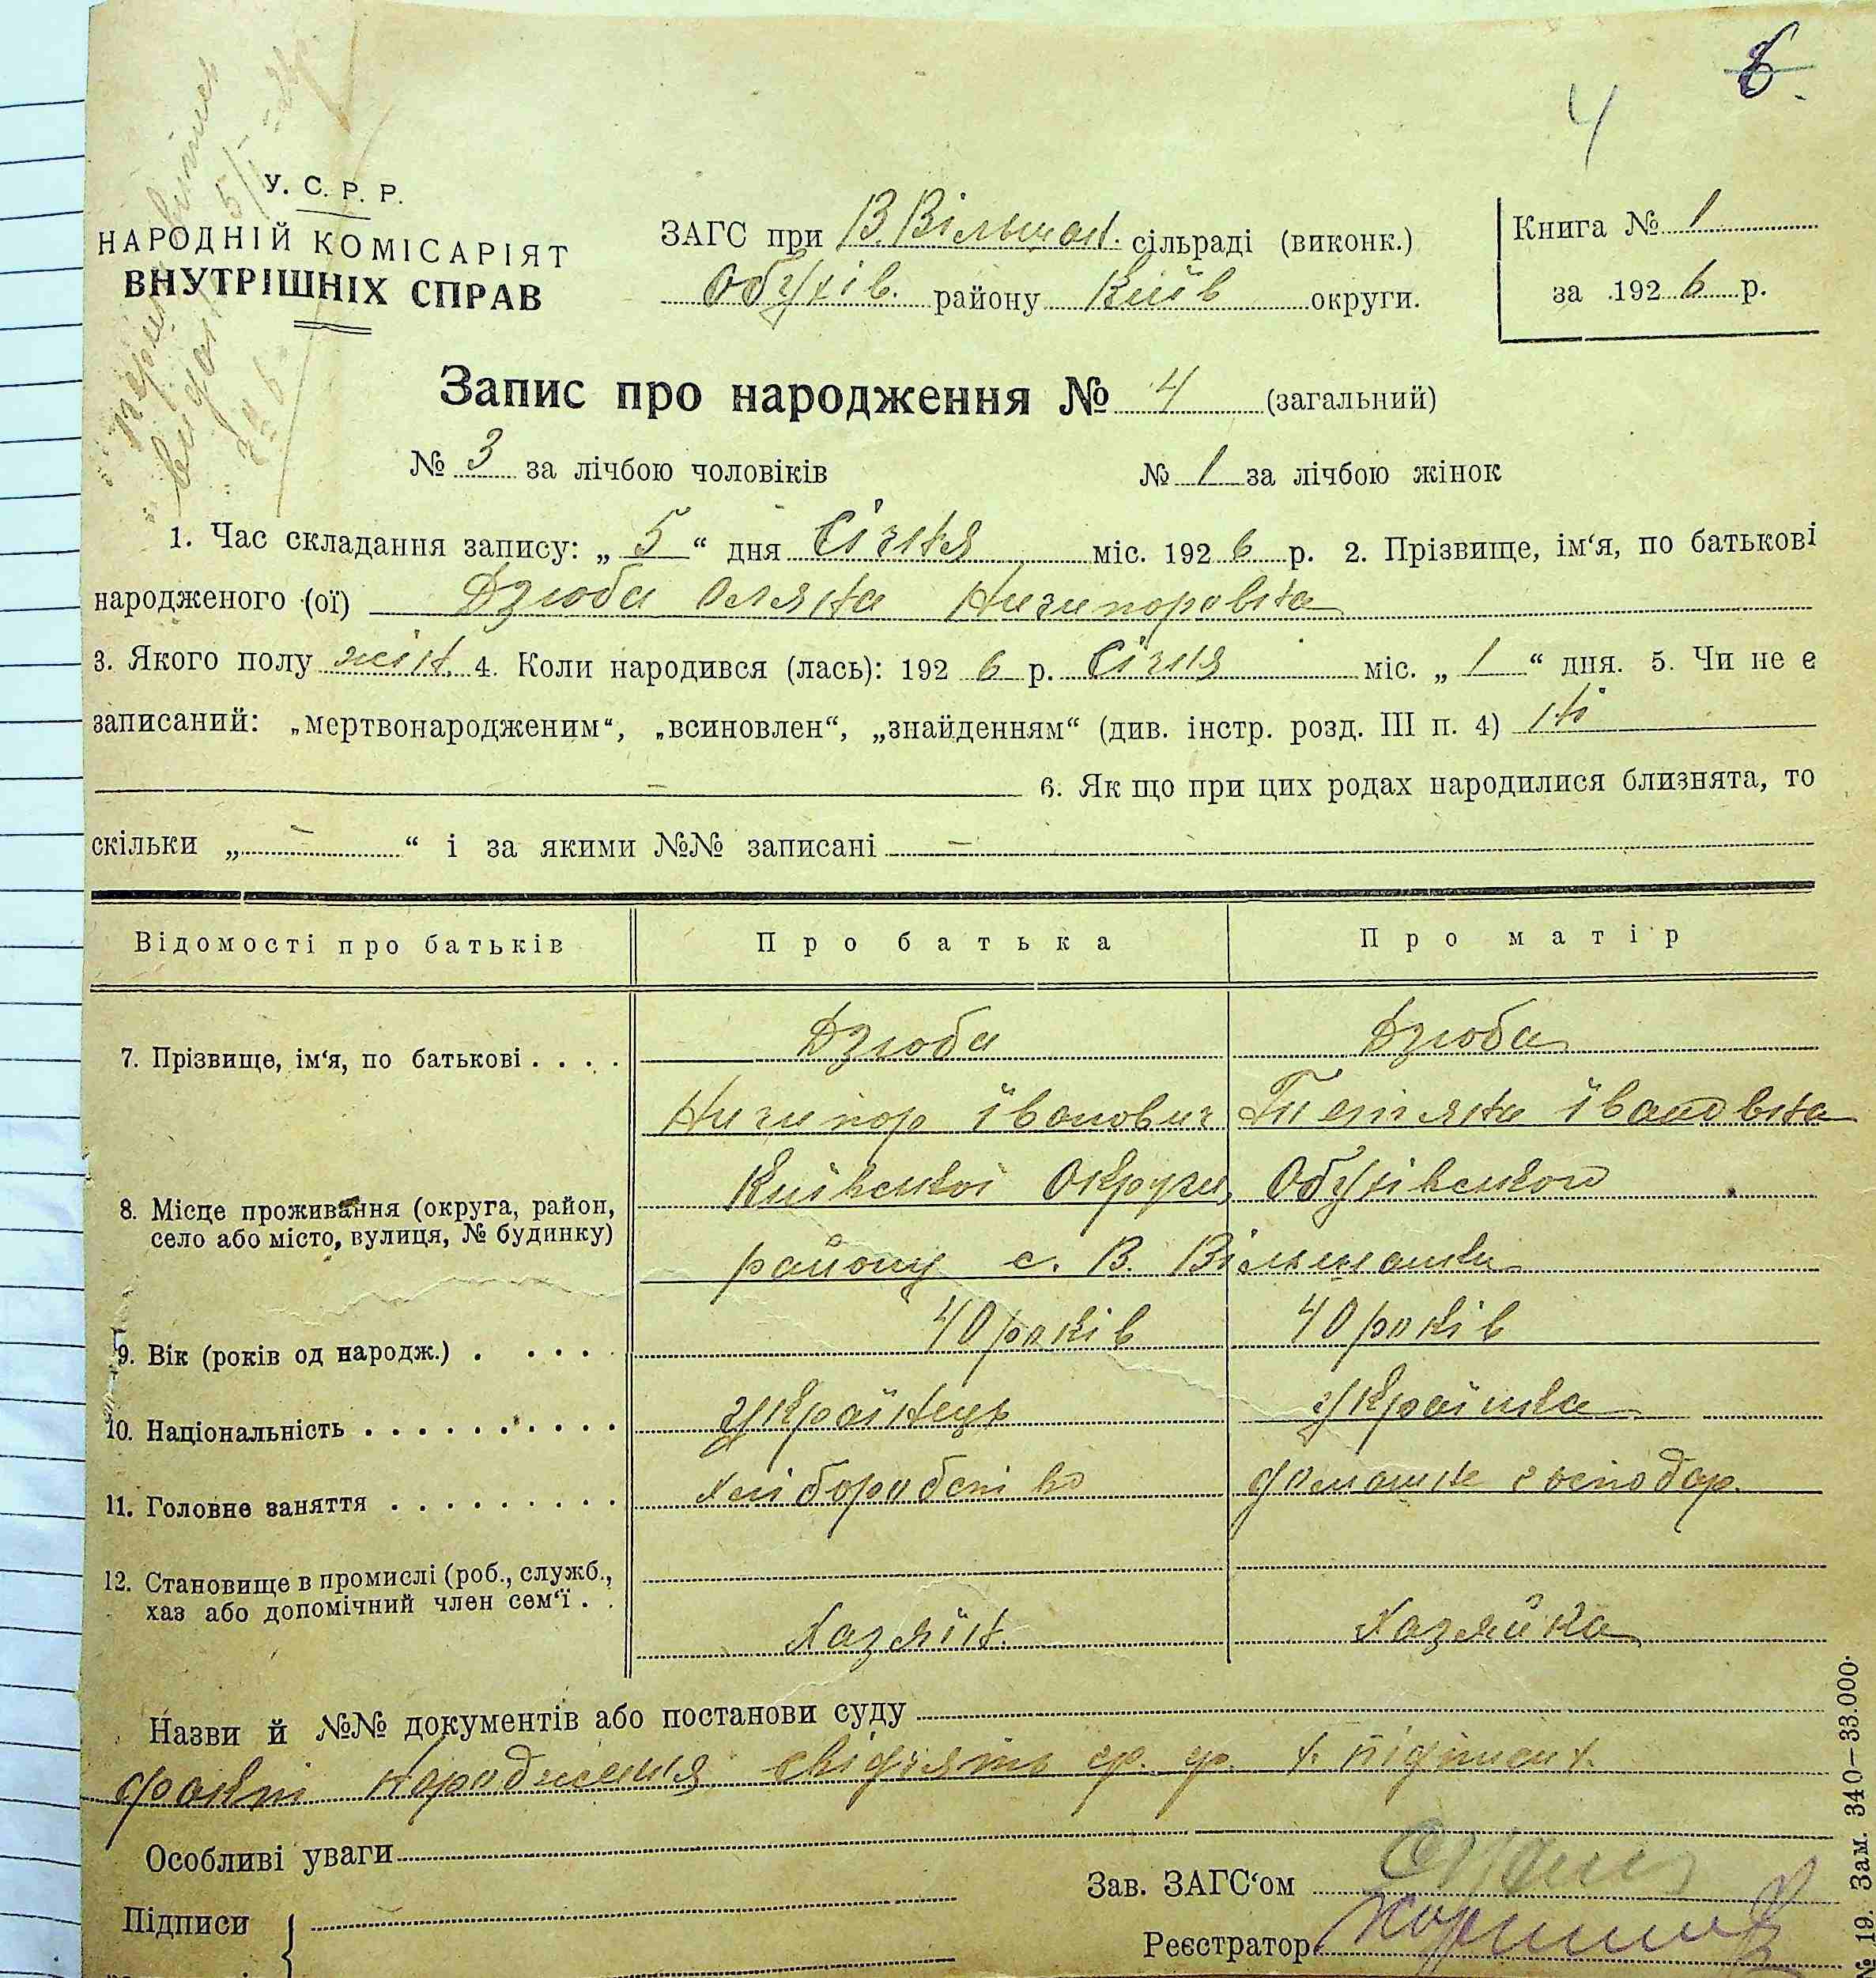 8.
4
У. С. Р. Р.
НАРОДНІЙ КОМІСАРІЯТ
ВНУТРІШНІХ СПРАВ
ЗАГС при В. Вільшан. сільраді (виконк.)
Обухів. району Київ округи.
Книга № 1
за 1926 р.
Запис про народження № 4 (загальний)
№ 3 за лічбою чоловіків № 1 за лічбою жінок
1. Час складання запису: „5“ дня Січня міс. 1926 р. 2. Прізвище, ім‘я, по батькові
народженого (ої) Дзюба Оляна Ничипоровна
3. Якого полу жін. 4. Коли народився (лась): 1926 р. Січня міс. „1“ дня. 5. Чи не є
записаний: „мертвонародженим“, „всиновлен“, „знайденням“ (див. інстр. розд. III п. 4) ні
— 6. Як що при цих родах народилися близнята, то
скільки „—“ і за якими №№ записані —
Відомості про батьків Про батька Про матір
7. Прізвище, ім‘я, по батькові . . . . Дзюба Дзюба
Ничипор Іванович Тетяна Івановна
Київської Округи, Обухівського
8. Місце проживання (округа, район,
село або місто, вулиця, № будинку)
району с. В. Вільшанки
9. Вік (років од народж.) . . . . . 40 років 40 років
10. Національність . . . . . . . . . . Українець Українка
11. Головне заняття . . . . . . . . . хліборобств во домашнє господар.
12. Становище в промислі (роб., служб.,
хаз або допомічний член сем‘ї . .
Хазяїн. Хазяйка
Назви й №№ документів або постанови суду
факт народження
Особливі уваги
Зав. ЗАГС‘ом
Підписи
Реєстратор
№ 19. Зам. 340—33.000.